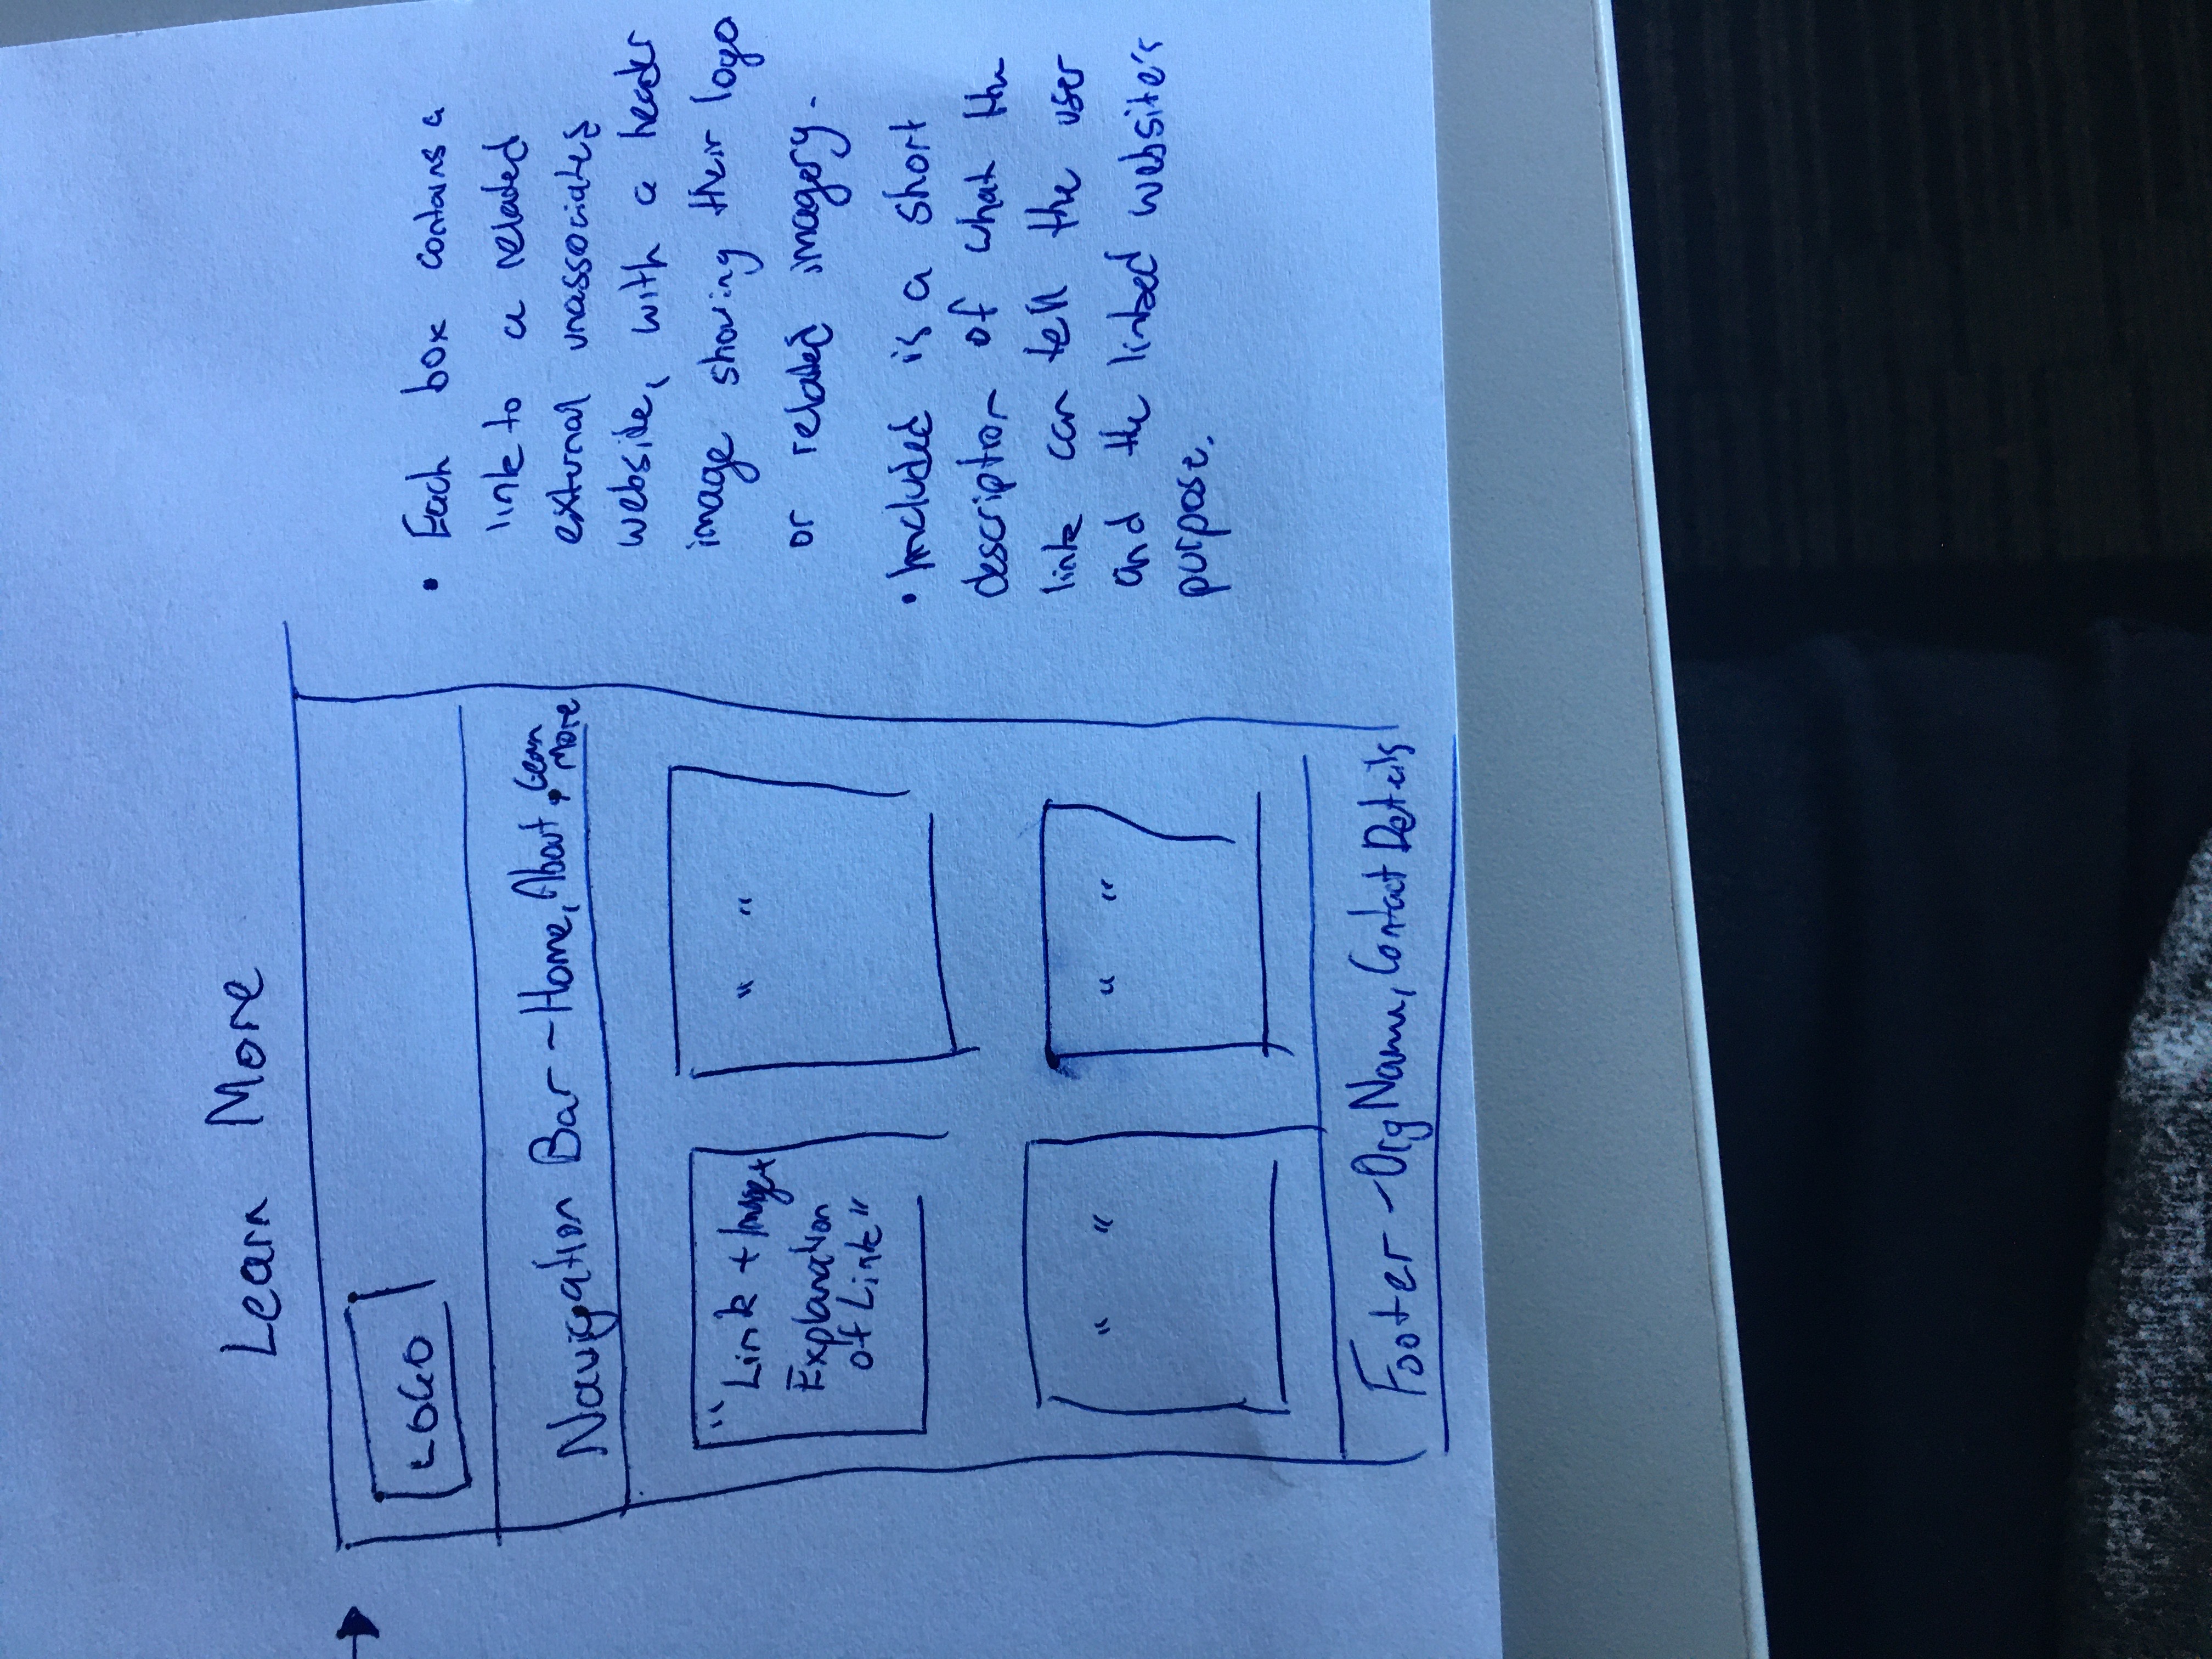 Learn More
LOGO
Navigation Bar - Home, About, Learn
More
"Link + Image +
Explanation
of Link"
" "
" "
" "
Footer - Org Name, Contact Details
• Each box contains a
link to a related
external unassociated
website, with a header
image showing their logo
or related imagery.
• Included is a short
description of what the
link can tell the user
and the linked website's
purpose.